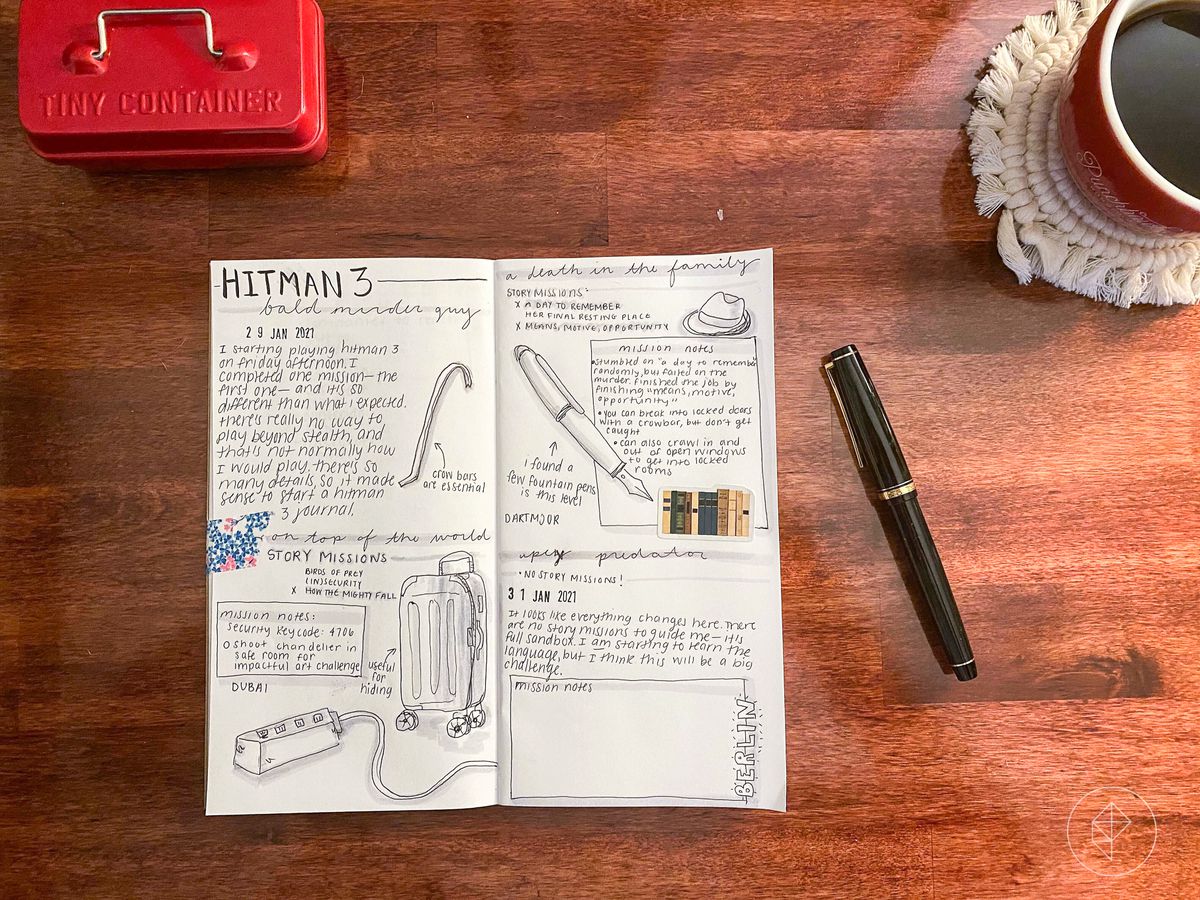 TINY CONTAINER
Punch
HITMAN 3
bald murder guy
29 JAN 2021
I starting playing hitman 3
on friday afternoon. I
completed one mission—the
first one—and it's so
different than what i expected.
there's really no way to
play beyond stealth, and
that's not normally how
I would play. there's so
many details, so it made
sense to start a hitman
3 journal.
crow bars
are essential
on top of the world
STORY MISSIONS
BIRDS OF PREY
(IN)SECURITY
X HOW THE MIGHTY FALL
mission notes:
security keycode: 4706
o shoot chandelier in
safe room for
impactful art challenge
useful
for
hiding
DUBAI
a death in the family
STORY MISSIONS:
X A DAY TO REMEMBER
HER FINAL RESTING PLACE
X MEANS, MOTIVE, OPPORTUNITY
mission notes
•stumbled on "a day to remember
randomly, but failed on the
murder. finished the job by
finishing "means, motive,
opportunity"
•you can break into locked doors
with a crowbar, but don't get
caught
•can also crawl in and
out of open windows
to get into locked
rooms
i found a
few fountain pens
is this level
DARTMOOR
apex predator
•NO STORY MISSIONS!
31 JAN 2021
It looks like everything changes here. There
are no story missions to guide me—it's
full sandbox. I am starting to learn the
language, but I think this will be a big
challenge.
mission notes
BERLIN